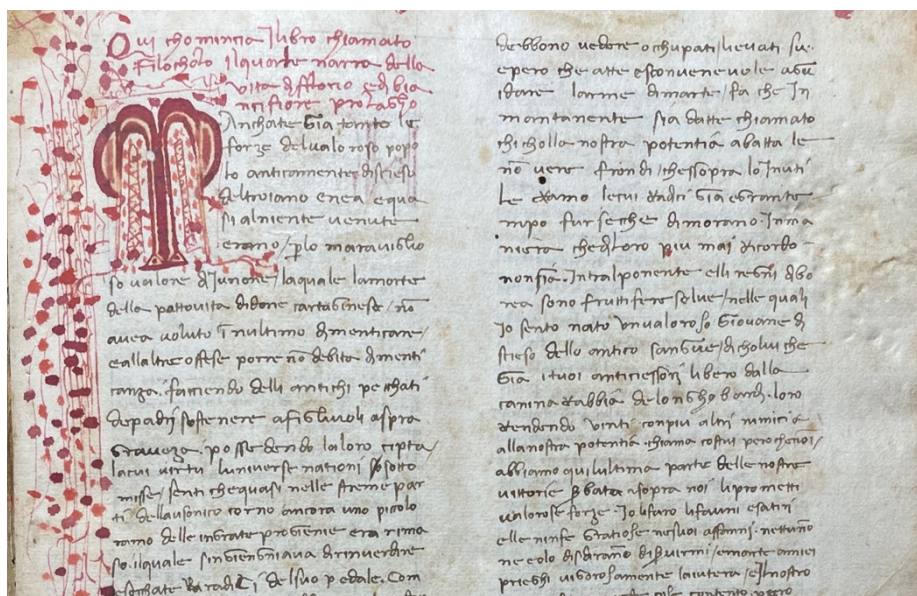 Qui chomincia Ilibro chiamato
Filocholo ilquale narra della
vita difflorio edi bia
ncifiore prolagho
Manchate Gia tanto le
forze del valoroso popo
lo anticamente disceso
del troiano enea equa
si alniente venute
erano / plo maraviglio
so valore di Junione / laquale lamorte
della pattovita didone cartaginese / nō
avea voluto inultimo dimenticare /
eallaltre offese porre nō debita dimenti
canza . faccendo delli antichi pecchati
depadri sostenere afigliuoli aspra
Graveza . possedendo laloro cipta /
lacui virtu luniverse nationi sosotto
misse / senti chequasi nelle streme par
ti dellausonico corno ancora uno picolo
ramo delle ingrate progienie era rima
so . ilquale singiengniava dirinverdire
leseche radici delsuo pedale . Com
debbono vedere ochupati lievati su .
epero che atte esconvenevole aGu
idare larme dimarte / fa che In
mantanente sia datte chiamato
chi cholla nostra potentia abatta le
nō vere frondi / chessopra lo Inuti
le Ramo lecui Radici Gia egrante
mpo fur seche dimorano . In ma
niera chediloro piu mai Ricordo
nonsia . Intralponente elli regni dibo
rea sono fruttifere selve / nelle quali
Io sento nato unvaloroso Giovane di
scieso dello antico sangue / dicholui che
Gia i tuoi anticiessori libero dalla
canina Rabbia delonghobardi . loro
Rendendo vinti conpiu altri nimici
allanostra potentia . chiama costui pero chenoi /
abbiamo quilultima parte delle nostre
vittorie serbata . esopra noi lipromette
valorose forze . Io lifaro lifauni esatiri
elle ninfe Gratiose nesuoi affanni . nettuno
ne eolo disdiranno diserviri / emarte amiei
prieghi vigorosamente laiutera / elnostro
contento . pero